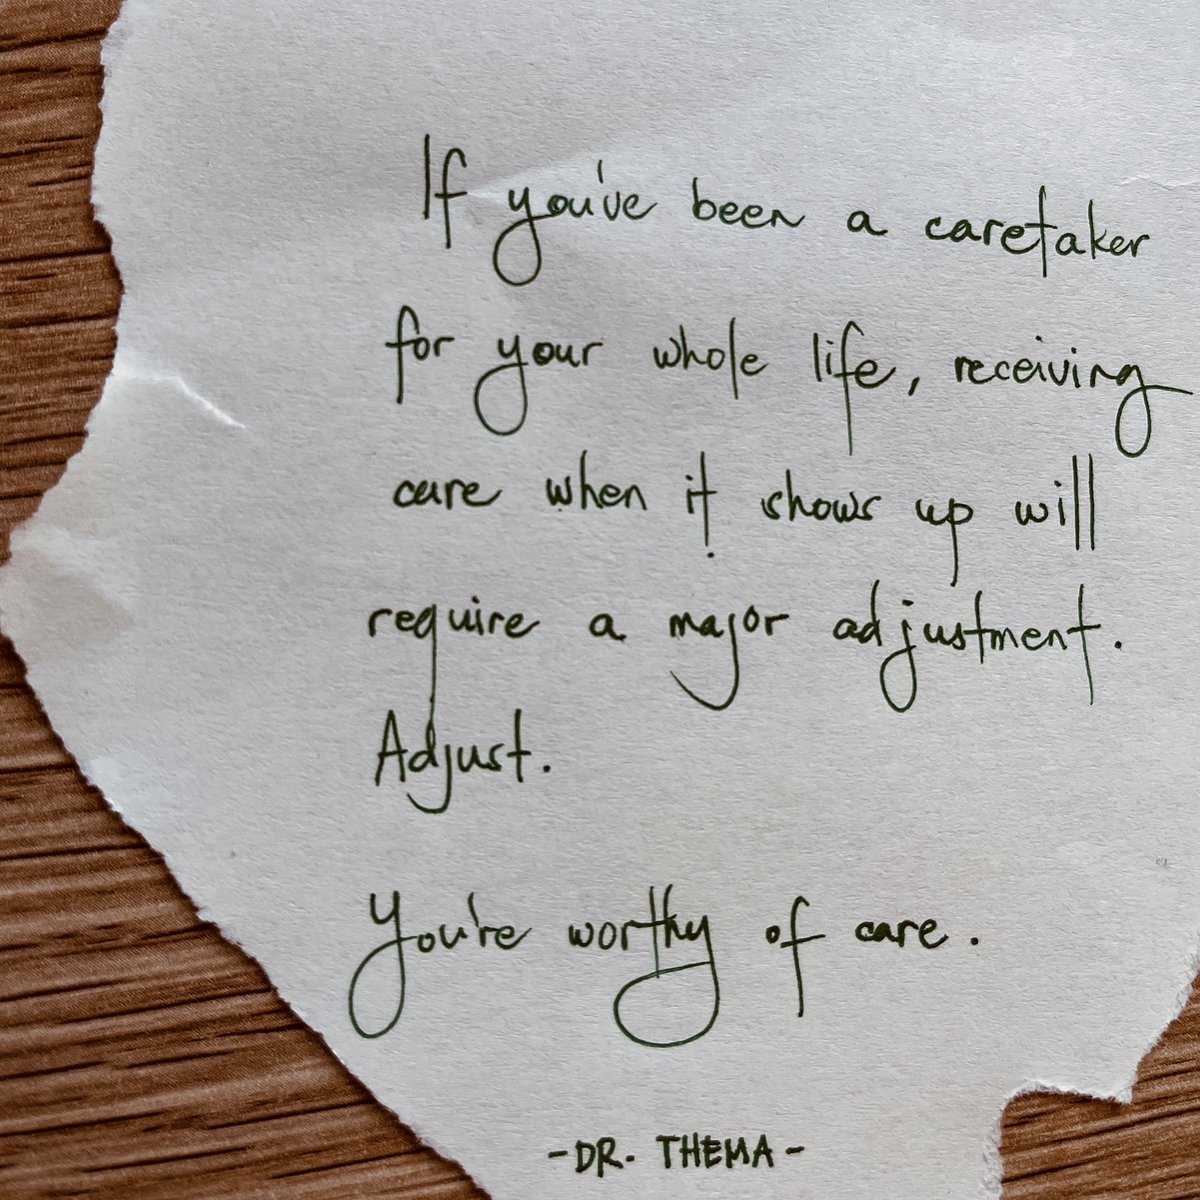 If you've been a caretaker
for your whole life, receiving
care when it shows up will
require a major adjustment.
Adjust.
You're worthy of care.
-DR. THEMA-